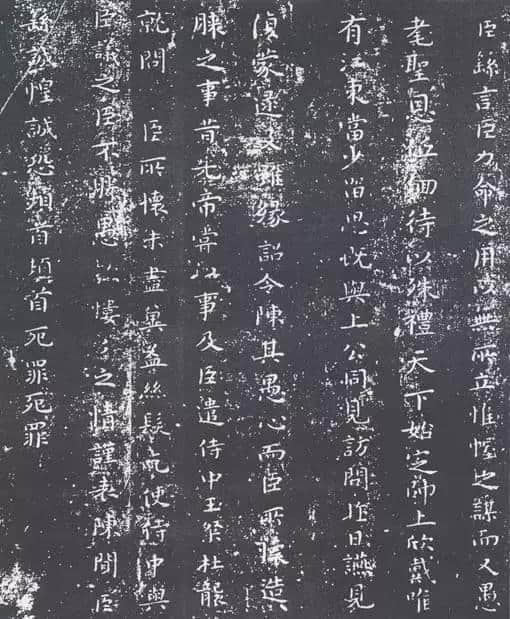 臣繇言臣力命之用以無所立惟幄之謀而又愚
耄聖恩低徊待以殊禮天下始定帥上欣戴唯
有江東當少留思既與上公同見訪問昨日讌見
復蒙逮及雖緣詔令陳其愚心而臣所懷造
膝之事昔先帝嘗以事及臣遣侍中王粲杜襲
就問 臣所懷未盡奚益絲髮乞使侍中與
臣議之臣不勝愚款慺々之情謹表陳聞臣
繇誠惶誠恐頓首頓首死罪死罪